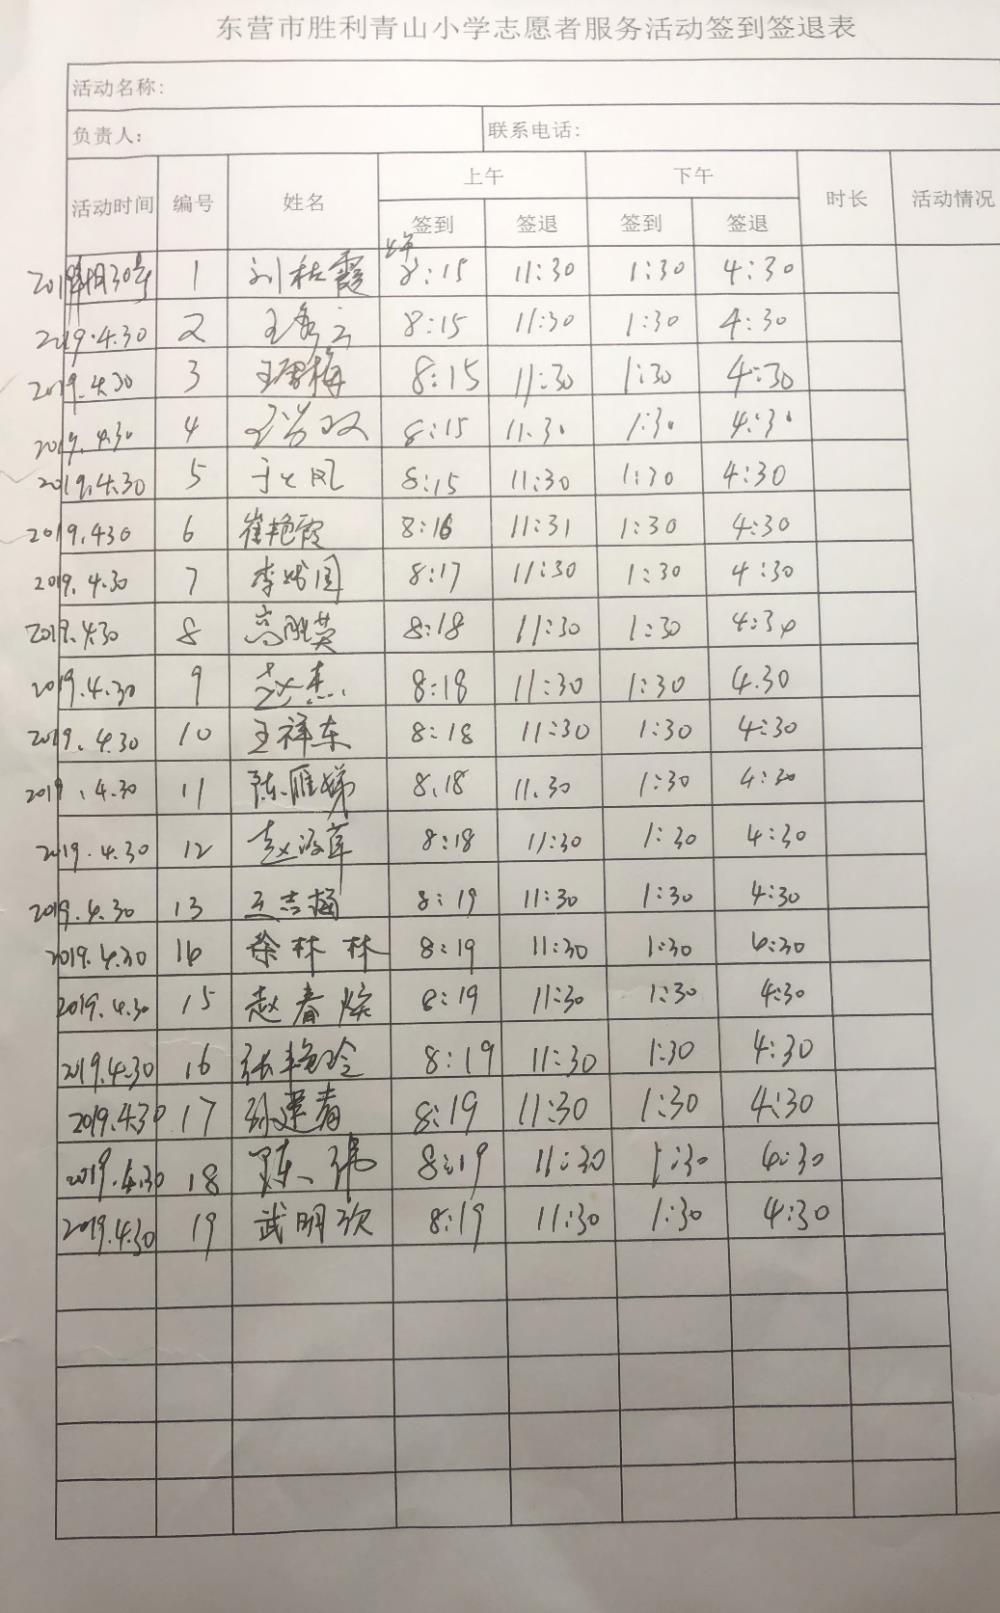 东营市胜利青山小学志愿者服务活动签到签退表
活动名称：
负责人： 联系电话：
活动时间 编号 姓名 上午 下午 时长 活动情况
签到 签退 签到 签退
上午
2019年4月30号 1 刘 霞 8:15 11:30 1:30 4:30
2019.4.30 2 王秀云 8:15 11:30 1:30 4:30
2019.4.30 3 王 梅 8:15 11:30 1:30 4:30
2019.4.30 4 8:15 11.30 1:30 4:30
2019.4.30 5 于 凤 8:15 11:30 1:30 4:30
2019.430 6 崔艳霞 8:16 11:31 1:30 4:30
2019.4.30 7 李 8:17 11:30 1:30 4:30
2019.4.30 8 高胜英 8:18 11:30 1:30 4:30
2019.4.30 9 赵杰 8:18 11:30 1:30 4.30
2019.4.30 10 王祥东 8:18 11:30 1:30 4:30
2019.4.30 11 陈雁娣 8.18 11.30 1:30 4:30
2019.4.30 12 赵 8:18 11:30 1:30 4:30
2019.4.30 13 王志 8:19 11:30 1:30 4:30
2019.4.30 14 徐林林 8:19 11:30 1:30 4:30
2019.4.30 15 赵春 8:19 11:30 1:30 4:30
2019.4.30 16 张艳玲 8:19 11:30 1:30 4:30
2019.4.30 17 孙建青 8:19 11:30 1:30 4:30
2019.4.30 18 陈 8:19 11:30 1:30 4:30
2019.4.30 19 武明欣 8:19 11:30 1:30 4:30